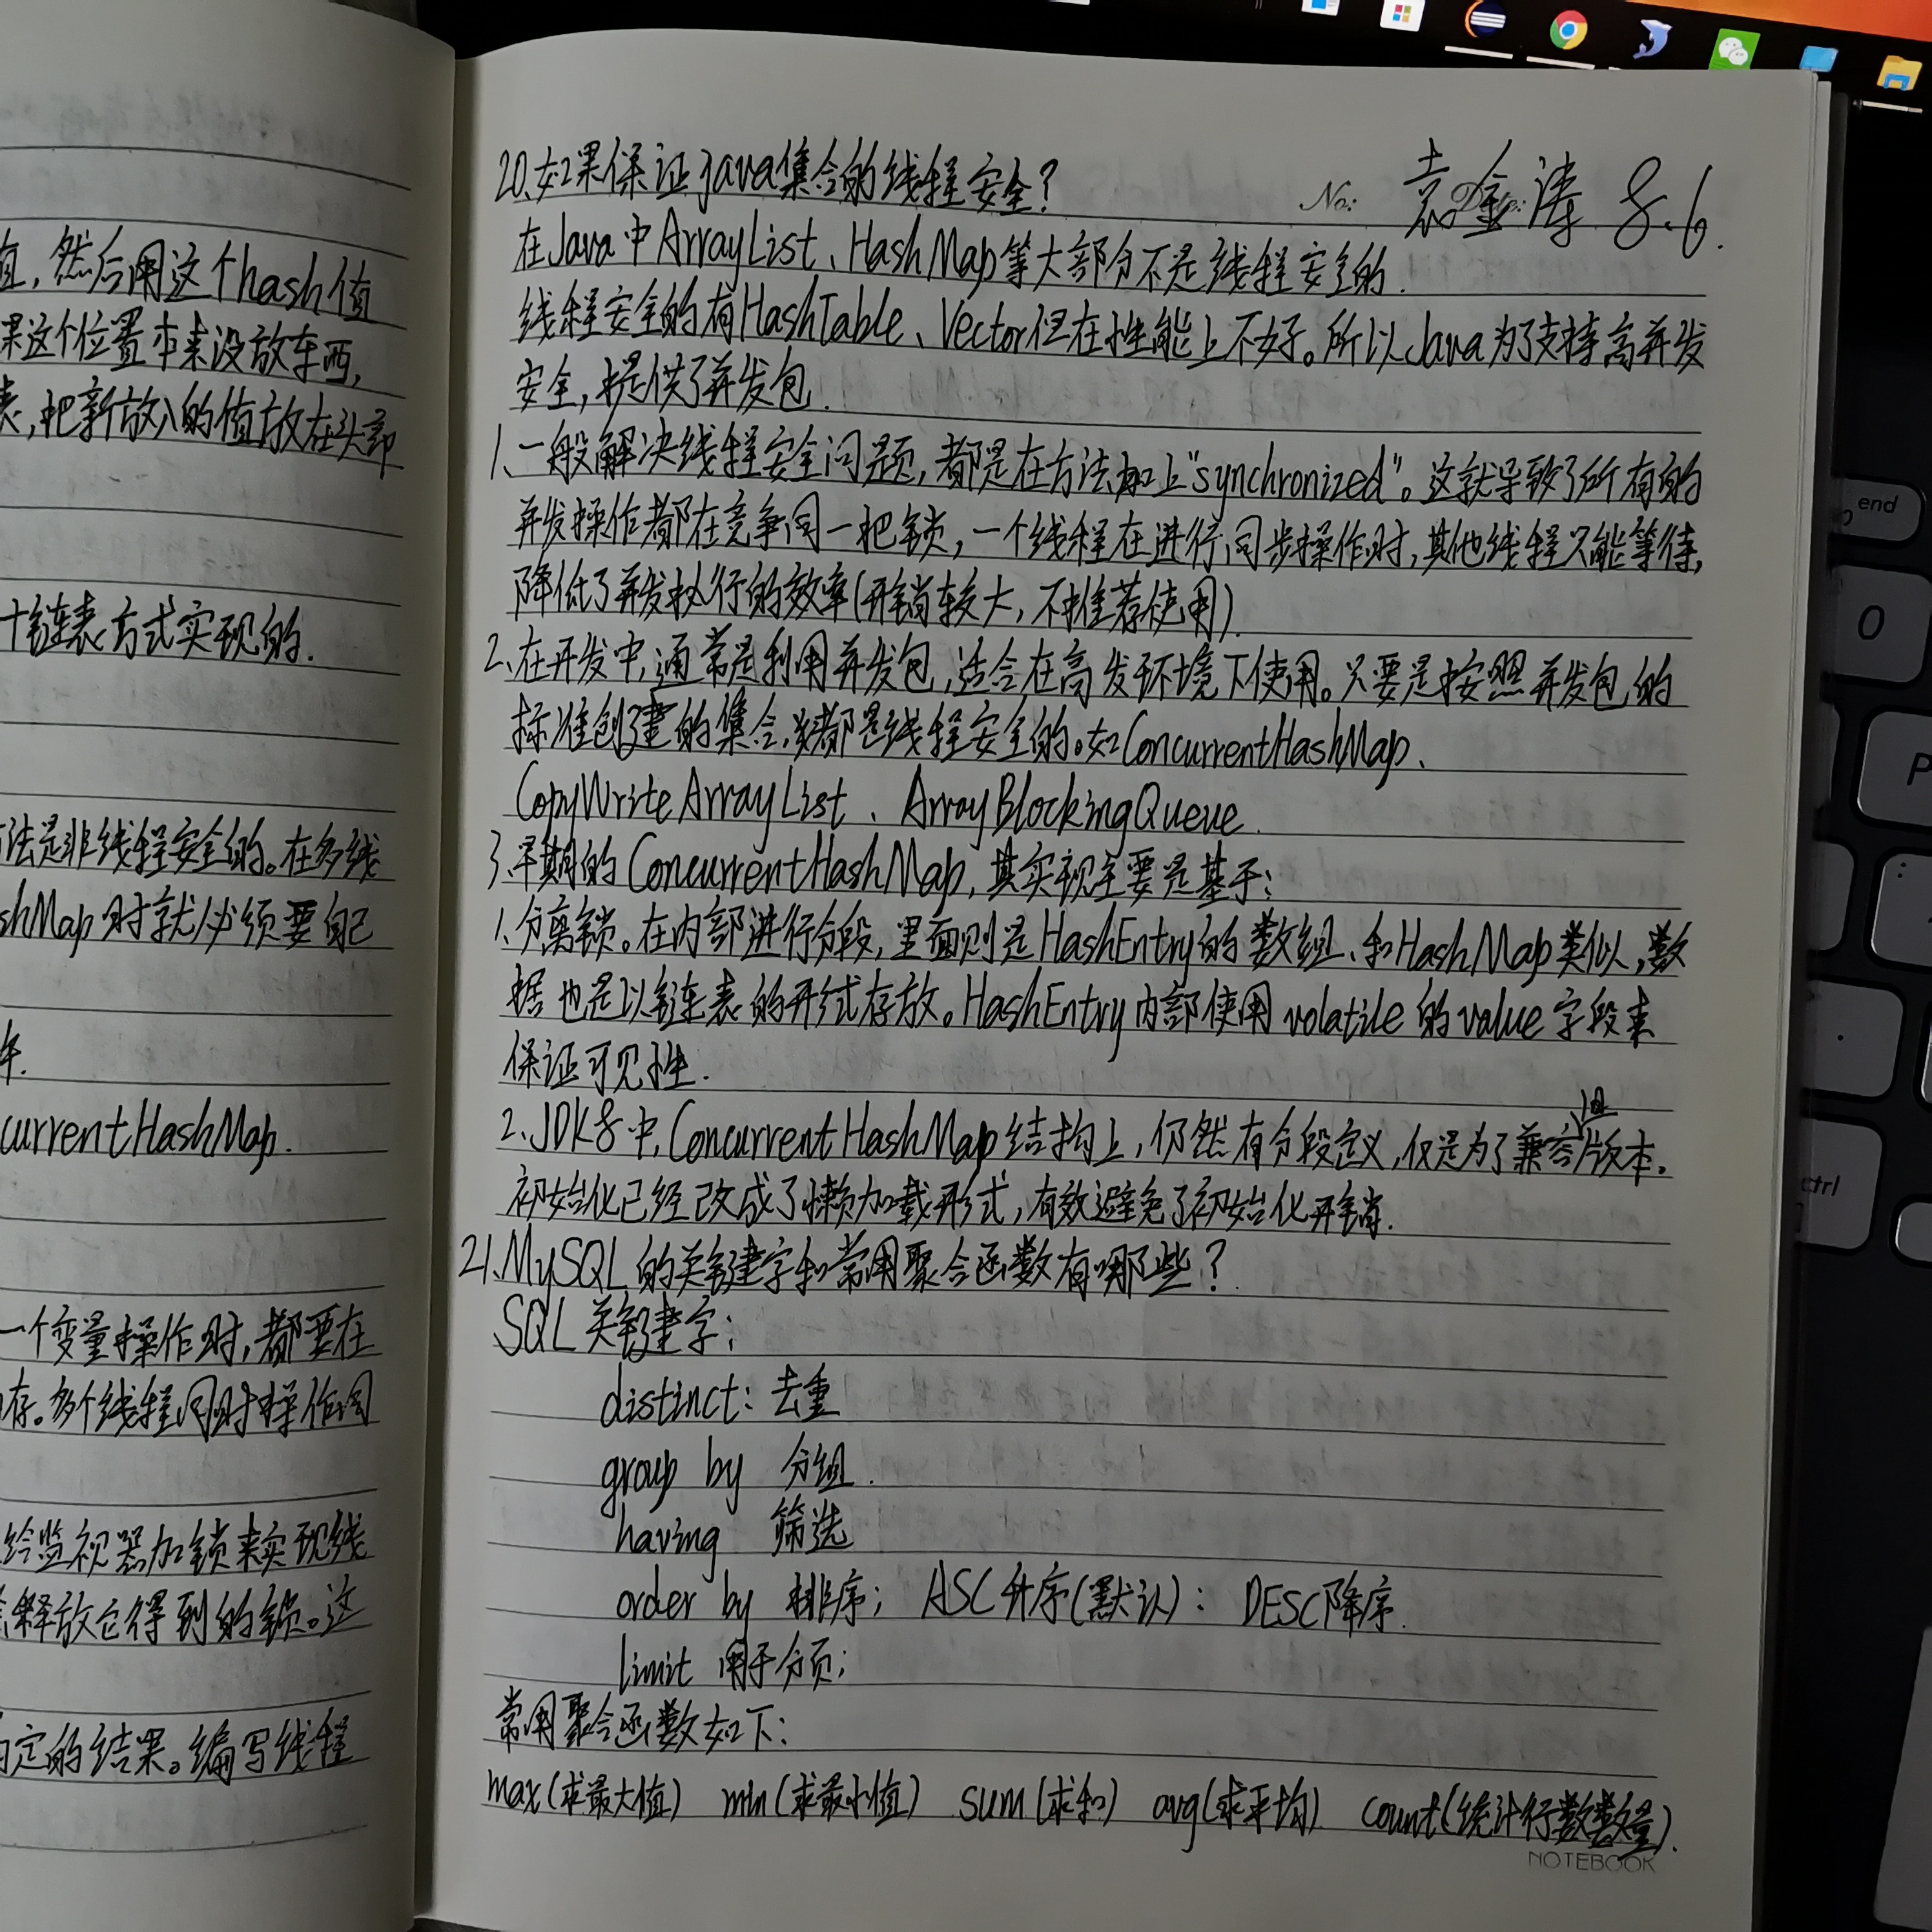 值,然后用这个hash值
果这个位置本来没放东西,
表,把新放入的值放在头部
+链表方式实现的.
方法是非线程安全的。在多线
shMap时就必须要自己
currentHashMap.
一个变量操作时,都要在
存。多个线程同时操作同
给监视器加锁来实现线
释放它得到的锁。这
定的结果。编写线程
No: Date: 袁金涛 8.6.
20.如果保证java集合的线程安全?
在Java中ArrayList、HashMap等大部分不是线程安全的.
线程安全的有HashTable、Vector但在性能上不好。所以Java为了支持高并发
安全,提供了并发包.
1、一般解决线程安全问题,都是在方法加上"synchronized"。这就导致了所有的
并发操作都在竞争同一把锁,一个线程在进行同步操作时,其他线程只能等待,
降低了并发执行的效率(开销较大,不推荐使用).
2、在开发中,通常是利用并发包,适合在高发环境下使用。只要是按照并发包的
标准创建的集合,都是线程安全的。如ConcurrentHashMap、
CopyWriteArrayList、ArrayBlockingQueue.
3、早期的ConcurrentHashMap,其实现主要是基于:
1、分离锁。在内部进行分段,里面则是HashEntry的数组、和HashMap类似,数
据也是以链表的形式存放。HashEntry内部使用volatile的value字段来
保证可见性.
2、JDK8中,ConcurrentHashMap结构上,仍然有分段定义,仅是为了兼容旧版本.
初始化已经改成了懒加载形式,有效避免了初始化开销.
21、MySQL的关键字和常用聚合函数有哪些?
SQL关键字:
distinct: 去重
group by 分组.
having 筛选
order by 排序; ASC升序(默认): DESC降序.
limit 用于分页;
常用聚合函数如下:
max(求最大值) min(求最小值) sum(求和) avg(求平均) count(统计行数数量).
NOTEBOOK
end
O
P
ctrl